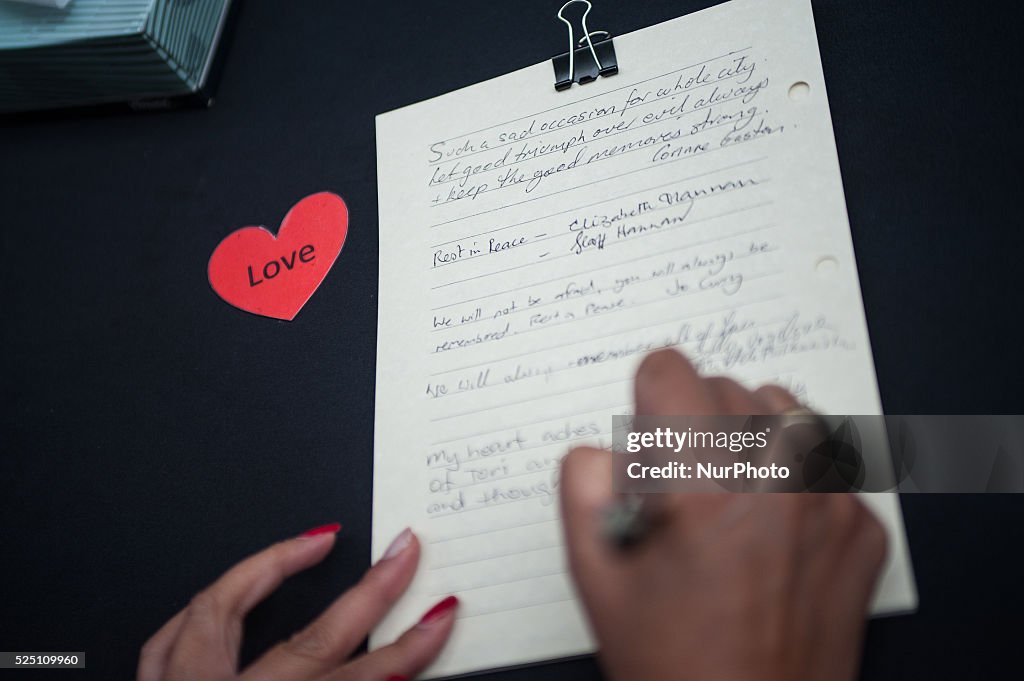 Such a sad occasion for whole city.
Let good triumph over evil always
+ keep the good memories strong.
Corinne Gaston.
Love
Rest in Peace - Elizabeth Hannan
- Scott Hannan
We will not be afraid, you will always be
remembered. Rest in Peace. Jo
We will always all of you
My heart aches
of Tori and
and
gettyimages®
Credit: NurPhoto
525109960